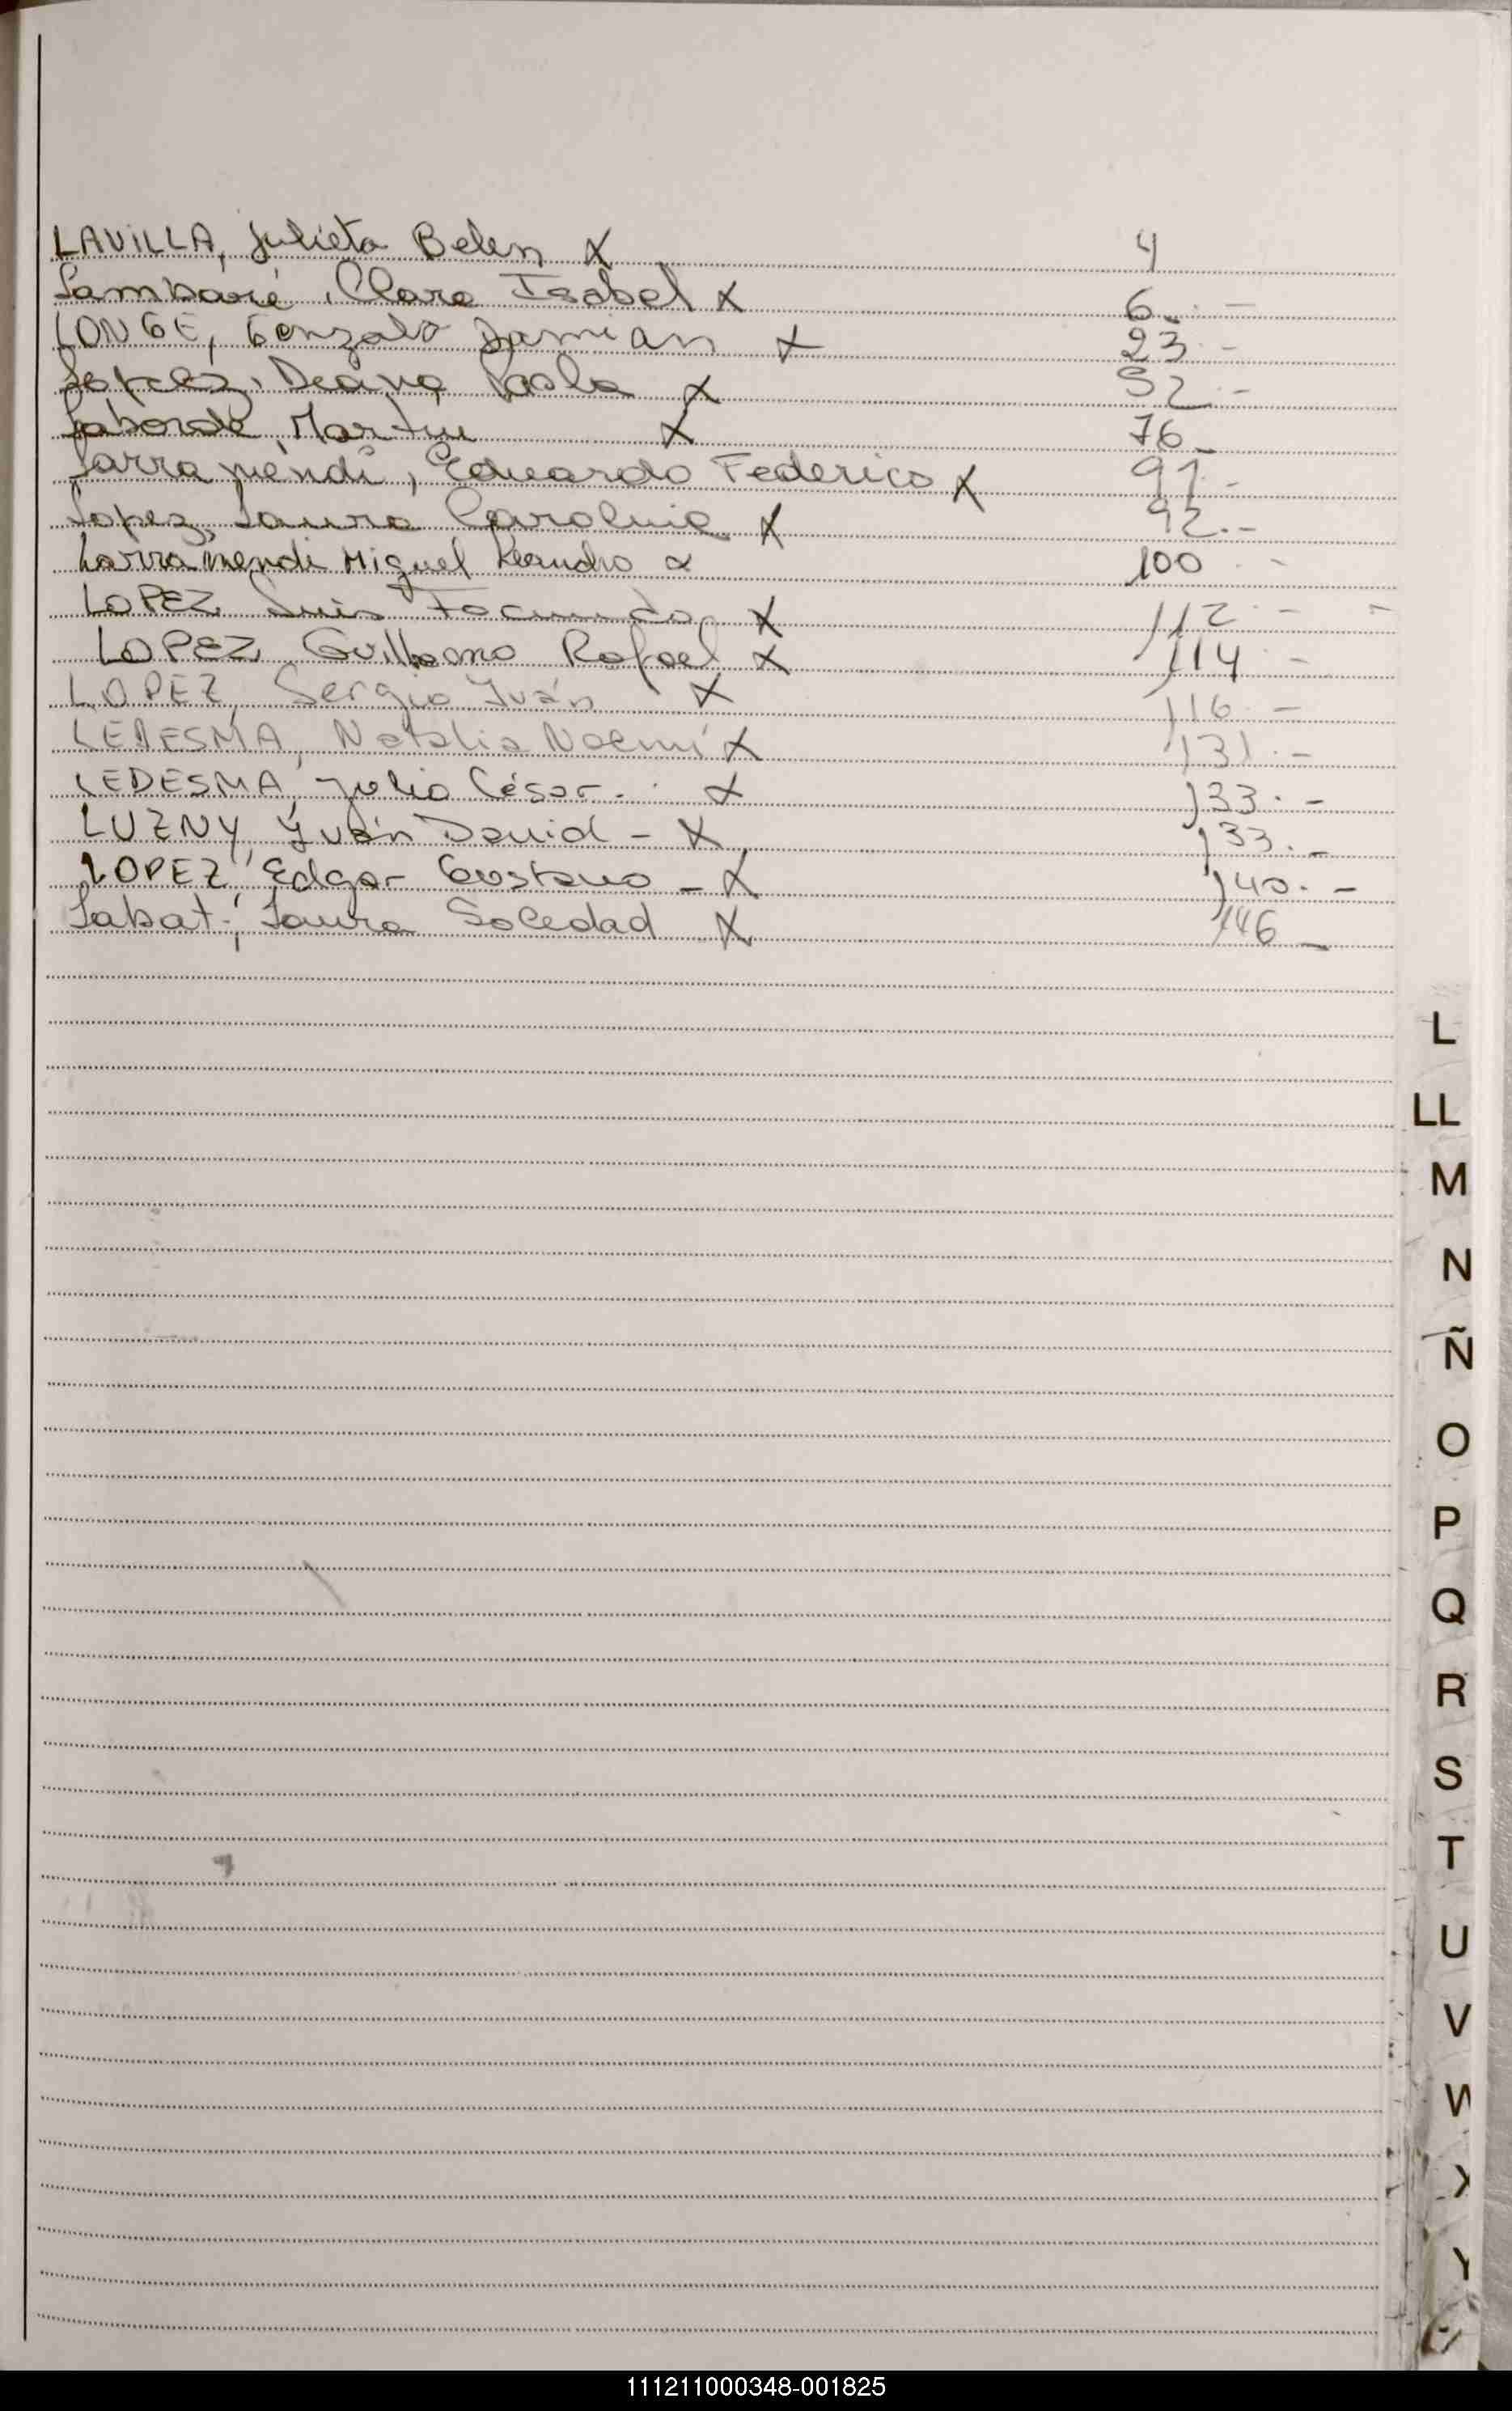 LAVILLA, Julieta Belen X 4
Lambaré, Clara Isabel X 6.-
LONGE, Gonzalo Damian X 23.-
Lopez, Deana Paola X 52.-
Laborde, Martin X 76-
Larramendi, Eduardo Federico X 91.-
Lopez, Laura Carolina X 92.-
Larramendi Miguel Leandro X 100.-
LOPEZ Luis Facundo X 112.- -
LOPEZ, Guillermo Rafael X 114.-
LOPEZ, Sergio Iván X 116.-
LEDESMA, Natalia Noemí X 131.-
LEDESMA, Julio César. X 133.-
LUZNY, Iván David - X 133.-
LOPEZ, Edgar Gustavo - X 140.-
Labat, Laura Soledad X 146-
L
LL
M
N
Ñ
O
P
Q
R
S
T
U
V
W
X
Y
111211000348-001825